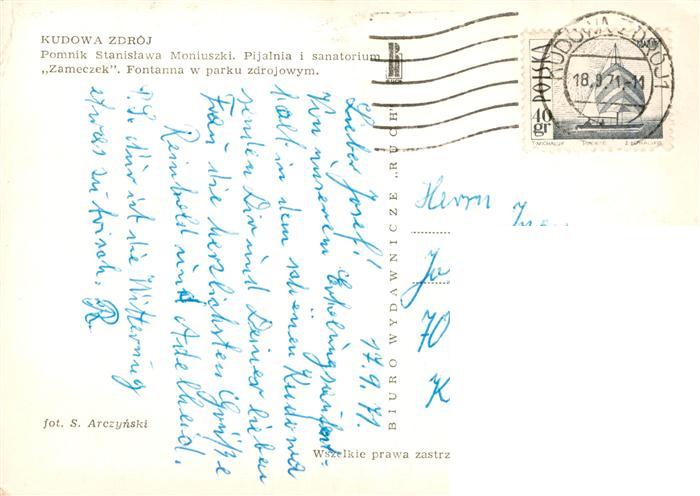 KUDOWA ZDRÓJ
Pomnik Stanisława Moniuszki. Pijalnia i sanatorium
„Zameczek". Fontanna w parku zdrojowym.
17.9.71.
Lieber Josef!
Von unserem Erholungsaufent-
halt in dem schönen Kudowa
senden Dir und Deiner lieben
Frau die herzlichsten Grüße
Reinhold und Adelheid.
P.S. Nur ist die Witterung
etwas zu frisch. R.
fot. S. Arczyński
BIURO WYDAWNICZE „RUCH"
Wszelkie prawa zastrz
KUDOWA ZDRÓJ 1
18.9.71.-11
POLSKA
40 gr
Herrn
Jo
70
K